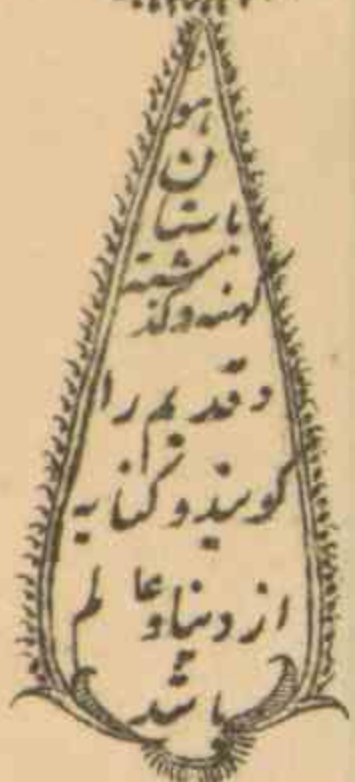 هو
ن
باستان
کهنه وکذشته
و قدیم را
کویند و کنایه
از دنیا و عالم
باشد